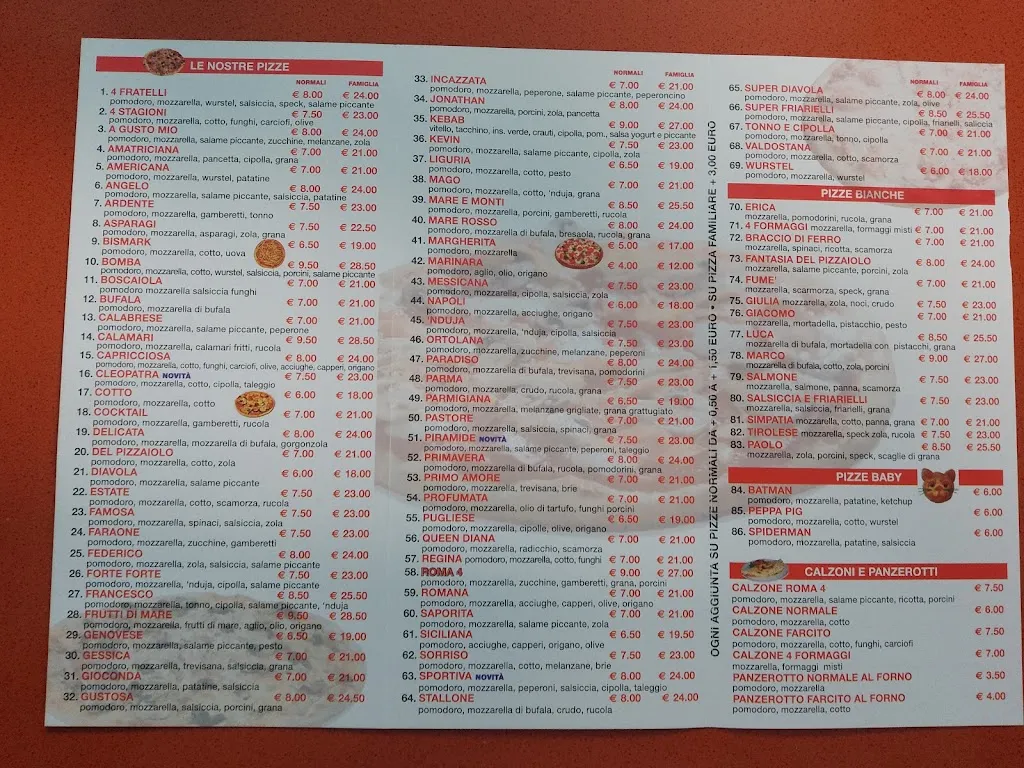 LE NOSTRE PIZZE
NORMALI FAMIGLIA
1. 4 FRATELLI € 8.00 € 24.00
pomodoro, mozzarella, wurstel, salsiccia, speck, salame piccante
2. 4 STAGIONI € 7.50 € 23.00
pomodoro, mozzarella, cotto, funghi, carciofi, olive
3. A GUSTO MIO € 8.00 € 24.00
pomodoro, mozzarella, salame piccante, zucchine, melanzane, zola
4. AMATRICIANA € 7.00 € 21.00
pomodoro, mozzarella, pancetta, cipolla, grana
5. AMERICANA € 7.00 € 21.00
pomodoro, mozzarella, wurstel, patatine
6. ANGELO € 8.00 € 24.00
pomodoro, mozzarella, salame piccante, salsiccia, patatine
7. ARDENTE € 7.50 € 23.00
pomodoro, mozzarella, gamberetti, tonno
8. ASPARAGI € 7.50 € 22.50
pomodoro, mozzarella, asparagi, zola, grana
9. BISMARK € 6.50 € 19.00
pomodoro, mozzarella, cotto, uova
10. BOMBA € 9.50 € 28.50
pomodoro, mozzarella, cotto, wurstel, salsiccia, porcini, salame piccante
11. BOSCAIOLA € 7.00 € 21.00
pomodoro, mozzarella salsiccia funghi
12. BUFALA € 7.00 € 21.00
pomodoro, mozzarella di bufala
13. CALABRESE € 7.00 € 21.00
pomodoro, mozzarella, salame piccante, peperone
14. CALAMARI € 9.50 € 28.50
pomodoro, mozzarella, calamari fritti, rucola
15. CAPRICCIOSA € 8.00 € 24.00
pomodoro, mozzarella, cotto, funghi, carciofi, olive, acciughe, capperi, origano
16. CLEOPATRA NOVITÀ € 7.50 € 23.00
pomodoro, mozzarella, cotto, cipolla, taleggio
17. COTTO € 6.00 € 18.00
pomodoro, mozzarella, cotto
18. COCKTAIL € 7.00 € 21.00
pomodoro, mozzarella, gamberetti, rucola
19. DELICATA € 8.00 € 24.00
pomodoro, mozzarella, mozzarella di bufala, gorgonzola
20. DEL PIZZAIOLO € 7.00 € 21.00
pomodoro, mozzarella, cotto, zola
21. DIAVOLA € 6.00 € 18.00
pomodoro, mozzarella, salame piccante
22. ESTATE € 7.50 € 23.00
pomodoro, mozzarella, cotto, scamorza, rucola
23. FAMOSA € 7.50 € 23.00
pomodoro, mozzarella, spinaci, salsiccia, zola
24. FARAONE € 7.50 € 23.00
pomodoro, mozzarella, zucchine, gamberetti
25. FEDERICO € 8.00 € 24.00
pomodoro, mozzarella, zola, salsiccia, salame piccante
26. FORTE FORTE € 7.50 € 23.00
pomodoro, mozzarella, 'nduja, cipolla, salame piccante
27. FRANCESCO € 8.50 € 25.50
pomodoro, mozzarella, tonno, cipolla, salame piccante, 'nduja
28. FRUTTI DI MARE € 9.50 € 28.50
pomodoro, mozzarella. frutti di mare, aglio, olio, origano
29. GENOVESE € 6.50 € 19.00
pomodoro, mozzarella, salame piccante, pesto
30. GESSICA € 7.00 € 21.00
pomodoro, mozzarella, trevisana, salsiccia, grana
31. GIOCONDA € 7.00 € 21.00
pomodoro, mozzarella, patatine, salsiccia
32. GUSTOSA € 8.00 € 24.50
pomodoro, mozzarella, salsiccia, porcini, grana
NORMALI FAMIGLIA
33. INCAZZATA € 7.00 € 21.00
pomodoro, mozzarella, peperone, salame piccante, peperoncino
34. JONATHAN € 8.00 € 24.00
pomodoro, mozzarella, porcini, zola, pancetta
35. KEBAB € 9.00 € 27.00
vitello, tacchino, ins. verde, crauti, cipolla, pom., salsa yogurt e piccante
36. KEVIN € 7.50 € 23.00
pomodoro, mozzarella, salame piccante, cipolla, zola
37. LIGURIA € 6.50 € 19.00
pomodoro, mozzarella, cotto, pesto
38. MAGO € 7.00 € 21.00
pomodoro, mozzarella, cotto, 'nduja, grana
39. MARE E MONTI € 8.50 € 25.50
pomodoro, mozzarella, porcini, gamberetti, rucola
40. MARE ROSSO € 8.00 € 24.00
pomodoro, mozzarella di bufala, bresaola, rucola, grana
41. MARGHERITA € 5.00 € 17.00
pomodoro, mozzarella
42. MARINARA € 4.00 € 12.00
pomodoro, aglio, olio, origano
43. MESSICANA € 7.50 € 23.00
pomodoro, mozzarella, cipolla, salsiccia, zola
44. NAPOLI € 6.00 € 18.00
pomodoro, mozzarella, acciughe, origano
45. 'NDUJA € 7.50 € 23.00
pomodoro, mozzarella, 'nduja, cipolla, salsiccia
46. ORTOLANA € 7.50 € 23.00
pomodoro, mozzarella, zucchine, melanzane, peperoni
47. PARADISO € 8.00 € 24.00
pomodoro, mozzarella di bufala, trevisana, pomodorini
48. PARMA € 7.50 € 23.00
pomodoro, mozzarella, crudo, rucola, grana
49. PARMIGIANA € 6.50 € 19.00
pomodoro, mozzarella, melanzane grigliate, grana grattugiato
50. PASTORE € 7.00 € 21.00
pomodoro, mozzarella, salsiccia, spinaci, grana
51. PIRAMIDE NOVITÀ € 7.50 € 23.00
pomodoro, mozzarella, salame piccante, peperoni, taleggio
52. PRIMAVERA € 8.00 € 24.00
pomodoro, mozzarella di bufala, rucola, pomodorini, grana
53. PRIMO AMORE € 7.00 € 21.00
pomodoro, mozzarella, trevisana, brie
54. PROFUMATA € 7.00 € 21.00
pomodoro, mozzarella, olio di tartufo, funghi porcini
55. PUGLIESE € 6.50 € 19.00
pomodoro, mozzarella, cipolle, olive, origano
56. QUEEN DIANA € 7.00 € 21.00
pomodoro, mozzarella, radicchio, scamorza
57. REGINA pomodoro, mozzarella, cotto, funghi € 7.00 € 21.00
58. ROMA 4 € 9.00 € 27.00
pomodoro, mozzarella, zucchine, gamberetti, grana, porcini
59. ROMANA € 7.00 € 21.00
pomodoro, mozzarella, acciughe, capperi, olive, origano
60. SAPORITA € 7.00 € 21.00
pomodoro, mozzarella, zola, salsiccia
61. SICILIANA € 6.50 € 19.50
pomodoro, acciughe, capperi, origano, olive
62. SORRISO € 7.50 € 23.00
pomodoro, mozzarella, cotto, melanzane, brie
63. SPORTIVA NOVITÀ € 8.00 € 24.00
pomodoro, mozzarella, peperoni, salsiccia, cipolla, taleggio
64. STALLONE € 8.00 € 24.00
pomodoro, mozzarella di bufala, crudo, rucola
OGNI AGGIUNTA SU PIZZE NORMALI DA + 0,50 A + 1,50 EURO • SU PIZZA FAMILIARE + 3,00 EURO
NORMALI FAMIGLIA
65. SUPER DIAVOLA € 8.00 € 24.00
pomodoro, mozzarella, salame piccante, zola, olive
66. SUPER FRIARIELLI € 8.50 € 25.50
pomodoro, mozzarella, salame piccante, cipolla, frianelli, saliccia
67. TONNO E CIPOLLA € 7.00 € 21.00
pomodoro, mozzarella, tonno, cipolla
68. VALDOSTANA € 7.00 € 21.00
pomodoro, mozzarella, cotto, scamorza
69. WURSTEL € 6.00 € 18.00
pomodoro, mozzarella, wurstel
PIZZE BIANCHE
70. ERICA € 7.00 € 21.00
mozzarella, pomodorini, rucola, grana
71. 4 FORMAGGI mozzarella, formaggi misti € 7.00 € 21.00
72. BRACCIO DI FERRO € 7.00 € 21.00
mozzarella, spinaci, ricotta, scamorza
73. FANTASIA DEL PIZZAIOLO € 8.00 € 24.00
mozzarella, salame piccante, porcini, zola
74. FUME' € 7.00 € 21.00
mozzarella, scarmorza, speck, grana
75. GIULIA mozzarella, zola, noci, crudo € 7.50 € 23.00
76. GIACOMO € 7.00 € 21.00
mozzarella, mortadella, pistacchio, pesto
77. LUCA € 8.50 € 25.50
mozzarella di bufala, mortadella con pistacchi, grana
78. MARCO € 9.00 € 27.00
mozzarella di bufala, cotto, zola, porcini
79. SALMONE € 7.50 € 23.00
mozzarella, salmone, panna, scamorza
80. SALSICCIA E FRIARIELLI € 7.50 € 23.00
mozzarella, salsiccia, frianelli, grana
81. SIMPATIA mozzarella, cotto, panna, grana € 7.00 € 21.00
82. TIROLESE mozzarella, speck zola, rucola € 7.50 € 23.00
83. PAOLO € 8.50 € 25.50
mozzarella, zola, porcini, speck, scaglie di grana
PIZZE BABY
84. BATMAN € 6.00
pomodoro, mozzarella, patatine, ketchup
85. PEPPA PIG € 6.00
pomodoro, mozzarella, cotto, wurstel
86. SPIDERMAN € 6.00
pomodoro, mozzarella, patatine, salsiccia
CALZONI E PANZEROTTI
CALZONE ROMA 4 € 7.50
pomodoro, mozzarella, salame piccante, ricotta, porcini
CALZONE NORMALE € 6.00
pomodoro, mozzarella, cotto
CALZONE FARCITO € 7.50
pomodoro, mozzarella, cotto, funghi, carciofi
CALZONE 4 FORMAGGI € 7.00
mozzarella, formaggi misti
PANZEROTTO NORMALE AL FORNO € 3.50
pomodoro, mozzarella
PANZEROTTO FARCITO AL FORNO € 4.00
pomodoro, mozzarella, cotto